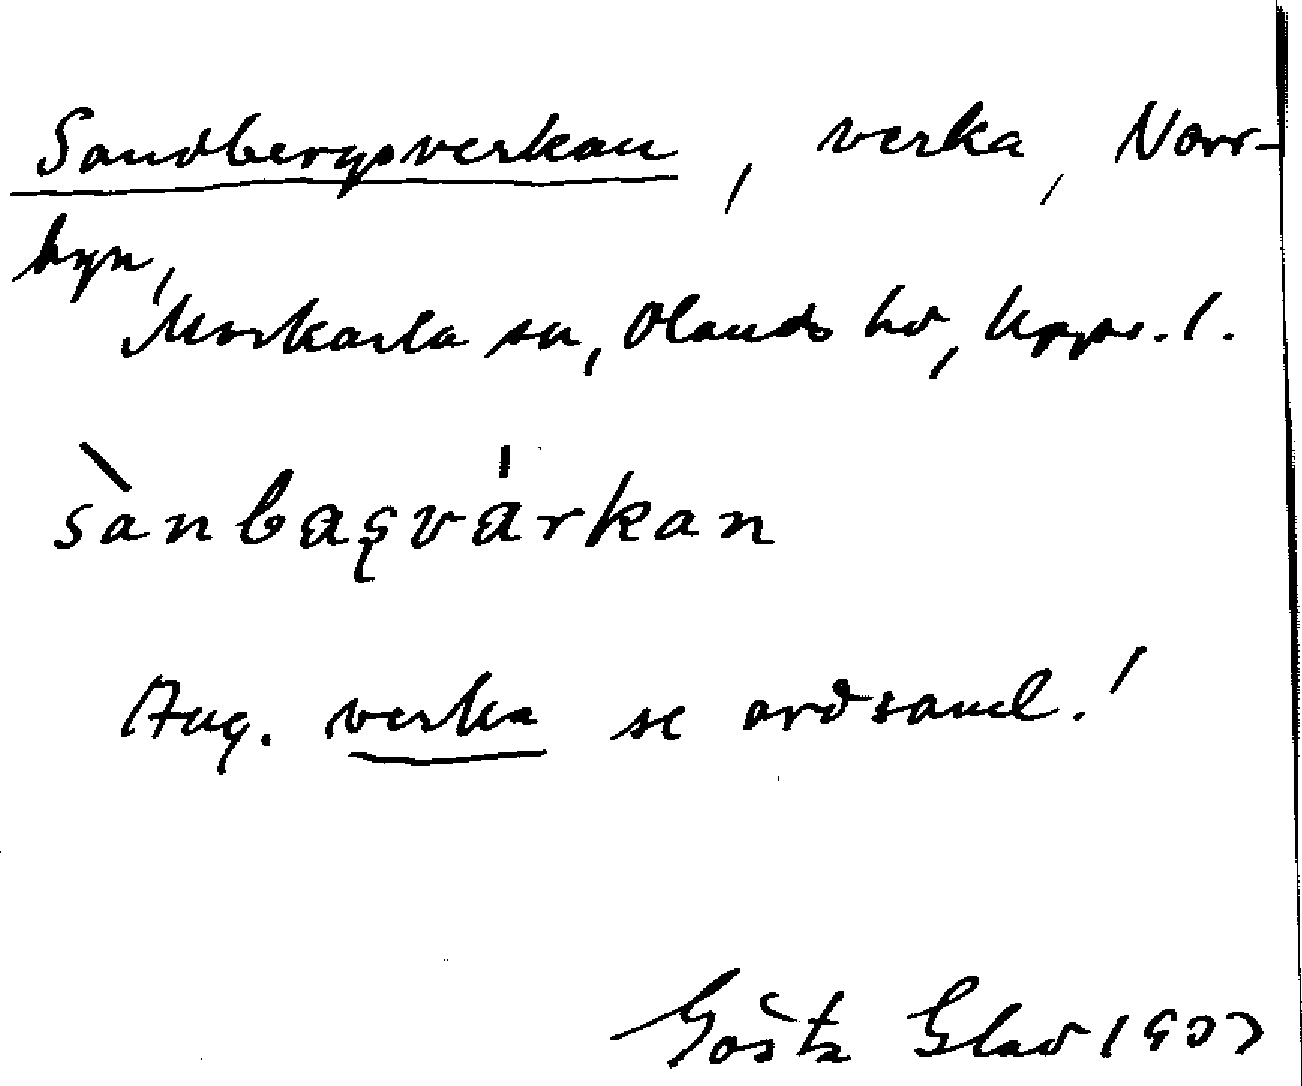 Sandbergsverkan, verka, Norr-
byn,
Morkarla sn, Olands hd, Upps. l.
sànbaʂvárkan
Ang. verka se ordsaml.!
Gösta Glad